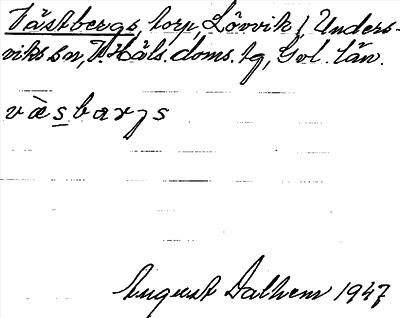 Västbergs, torp, Lövvik, Unders-
viks sn, V Häls. doms. tg, Gvl. län.
vàsbarjs
August Dalhem 1947